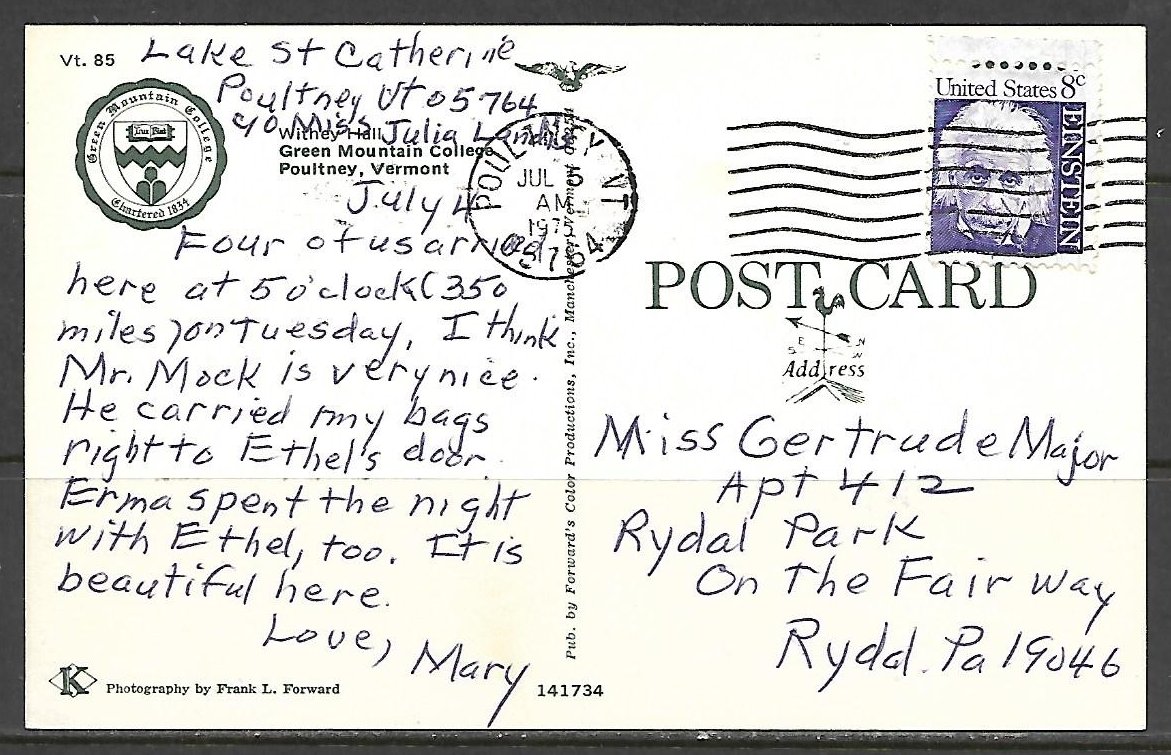 Vt. 85
Lake St Catherine
Poultney Vt 05764
c/o Miss Julia
Green Mountain College
Chartered 1834
Withey Hall
Green Mountain College
Poultney, Vermont
July 4
Four of us arrived
here at 5 o'clock (350
miles) on Tuesday, I think
Mr. Mock is very nice.
He carried my bags
right to Ethel's door.
Erma spent the night
with Ethel, too. It is
beautiful here.
Love,
Mary
K
Photography by Frank L. Forward
141734
Pub. by Forward's Color Productions, Inc., Manchester, Vermont
POULTNEY VT
JUL 5
AM
05764
United States 8c
EINSTEIN
POST CARD
E N
S W
Address
Miss Gertrude Major
Apt 412
Rydal Park
On The Fair way
Rydal. Pa 19046